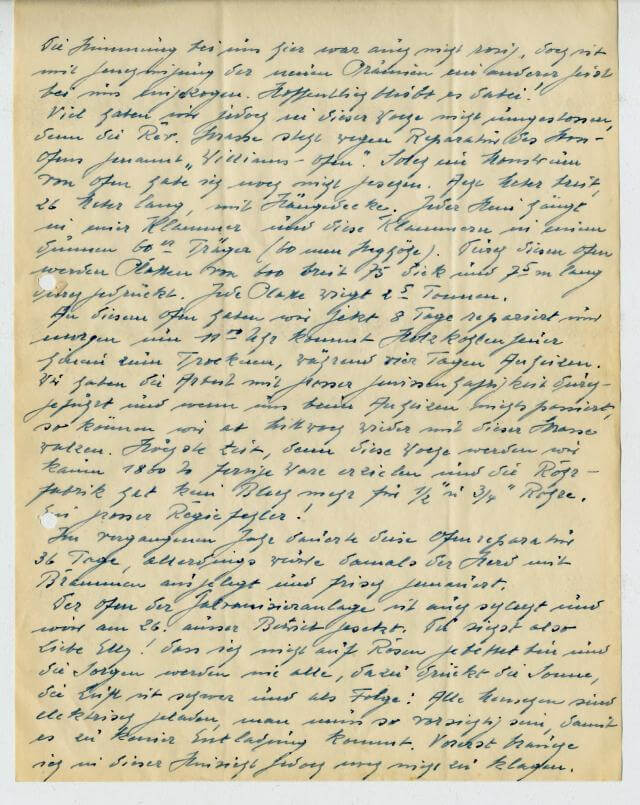 Die Stimmung bei uns hier war auch nicht rosig, doch ist
mit Genehmigung der neuen Prämien ein anderer Geist
bei uns eingezogen. Hoffentlich bleibt es dabei!
Viel haben wir jedoch in dieser Woche nicht
denn die Rev. Strasse steht wegen Reparatur des Stoss-
ofens genannt "Williams-Ofen". Solch ein Monstrum
von Ofen habe ich noch nicht gesehen. Acht Meter breit,
26 Meter lang, mit Hängedecke. Jeder Stein hängt
in einer Klammer und diese Klammern in einem
dünnen 60er Träger (60 mm Steghöhe). Durch diesen Ofen
werden Platten von 600 breit 75 dick und 7,5 m lang
durchgedrückt. Jede Platte wiegt 2,5 Tonnen.
An diesem Ofen haben wir jetzt 8 Tage repariert und
morgen um 11 Uhr kommt Holzkohlenfeuer
hinein zum Trocknen, während vier Tagen Anheizen.
Wir haben die Arbeit mit grosser Gewissenhaftigkeit durch-
geführt und wenn uns beim Anheizen nichts passiert,
so können wir ab Mittwoch wieder mit dieser Strasse
walzen. Höchste Zeit, denn diese Woche werden wir
kaum 1860 To fertige Ware erzielen und die Rohr-
fabrik hat kein Blech mehr für 1/2" u 3/4" Rohre.
Ein grosser Regiefehler!
Im vergangenen Jahr dauerte diese Ofenreparatur
36 Tage, allerdings wurde damals der Herd mit
Brammen ausgelegt und frisch gemauert.
Der Ofen der Galvanisieranlage ist auch schlecht und
wird am 26. ausser Betrieb gesetzt. Du siehst also
Liebe Elly! dass ich nicht auf Rosen gebettet bin und
die Sorgen werden nie alle, dazu drückt die Sonne,
die Luft ist schwer und als Folge: Alle Menschen sind
elektrisch geladen, man muss so vorsichtig sein, damit
es zu keiner Entladung kommt. Vorerst brauche
ich in dieser Hinsicht jedoch noch nicht zu klagen.